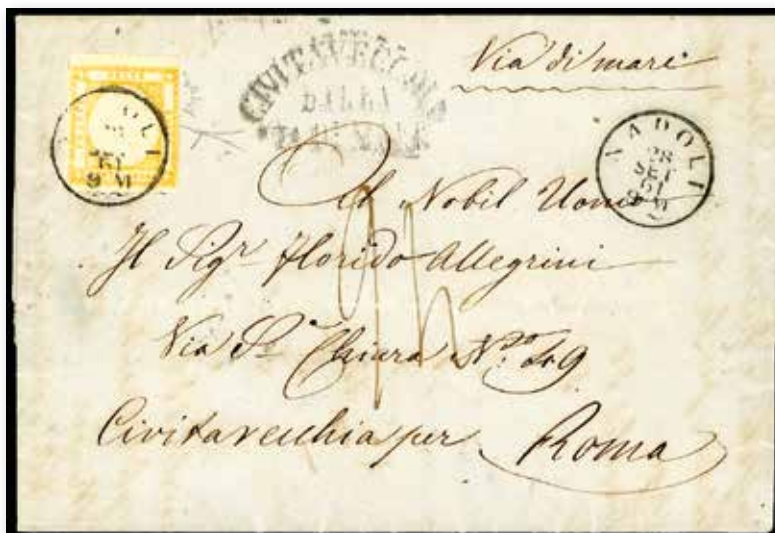 Via di mare
CIVITAVECCHIA
DALLA
VIA DI MARE
NAPOLI
28
SET
61
9 M
OLI
61
9 M
Al Nobil Uomo
Il Sigr Florido Allegrini
Via Sa Chiara No 49
Civitavecchia per Roma